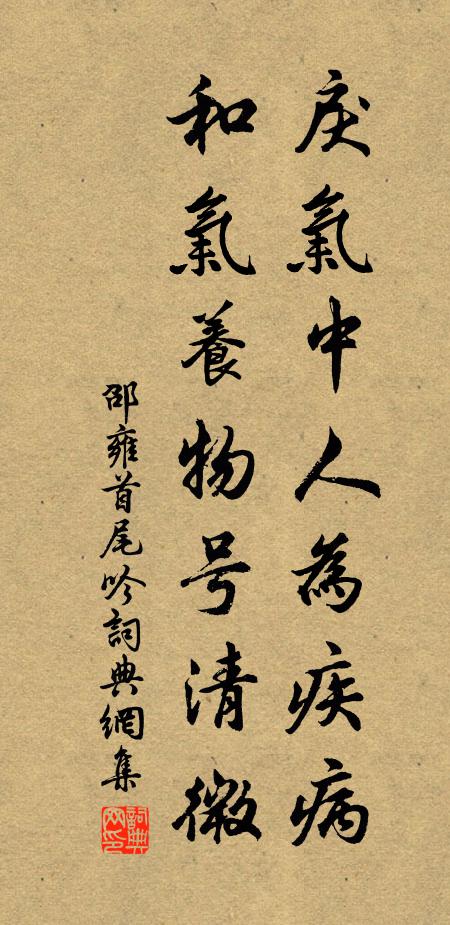 戾氣中人為疾病
和氣養物号清微
邵雍首尾吟詞典網集
詞典網印